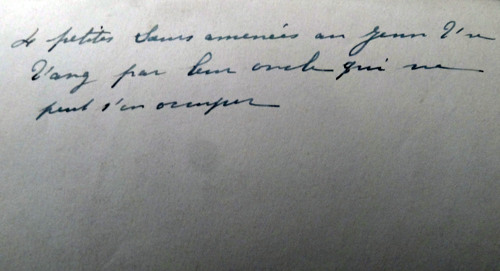 4 petites sœurs amenées au Jenn T'se
T'ang par leur oncle qui ne
peut s'en occuper